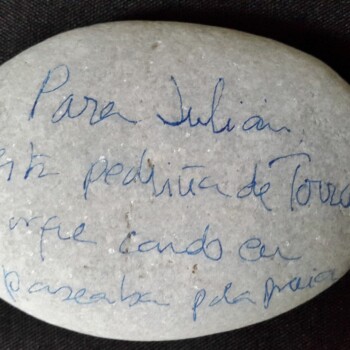 Para Julián
esta pedriña de Torre
cando eu
paseaba pola praia